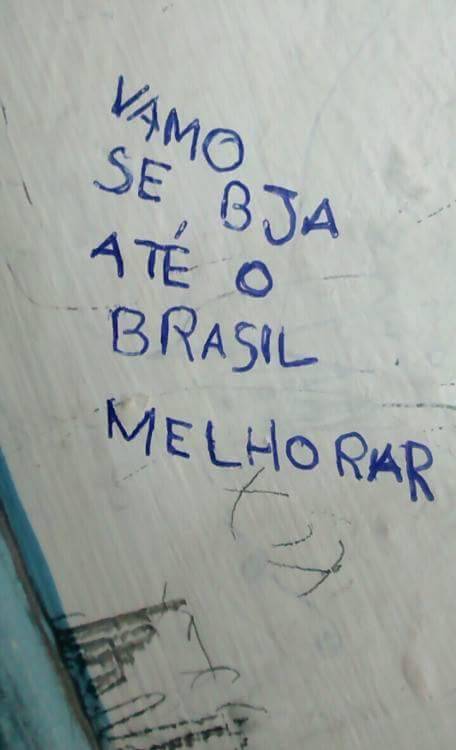 VAMO
SE BJA
ATÉ O
BRASIL
MELHORAR